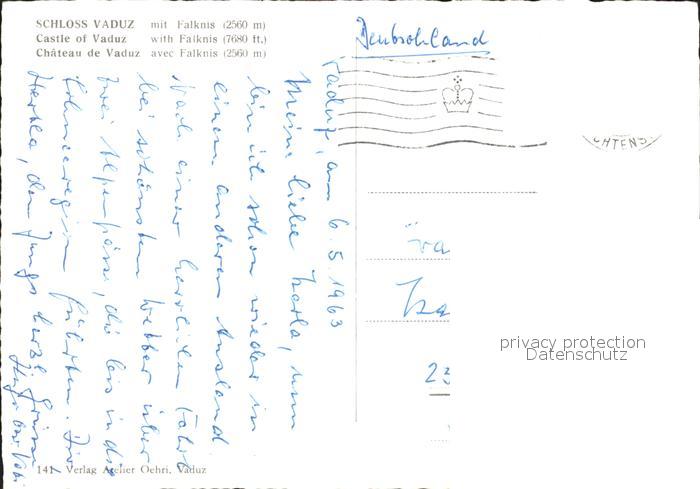 SCHLOSS VADUZ mit Falknis (2560 m)
Castle of Vaduz with Falknis (7680 ft.)
Château de Vaduz avec Falknis (2560 m)
Deutschland
CHTENS
Vaduz, am 6.5.1963
Meine liebe Herla, nun
bin ich schon wieder in
einem anderen Ausland
Nach einer herrlichen Fahrt
bei schönstem Wetter über
zwei Alpenpässe, die bis in die
Schneeregion führten. Dir
Herla, den Jungs herzl. Grüsse
23
privacy protection
Datenschutz
141 Verlag Atelier Oehri, Vaduz